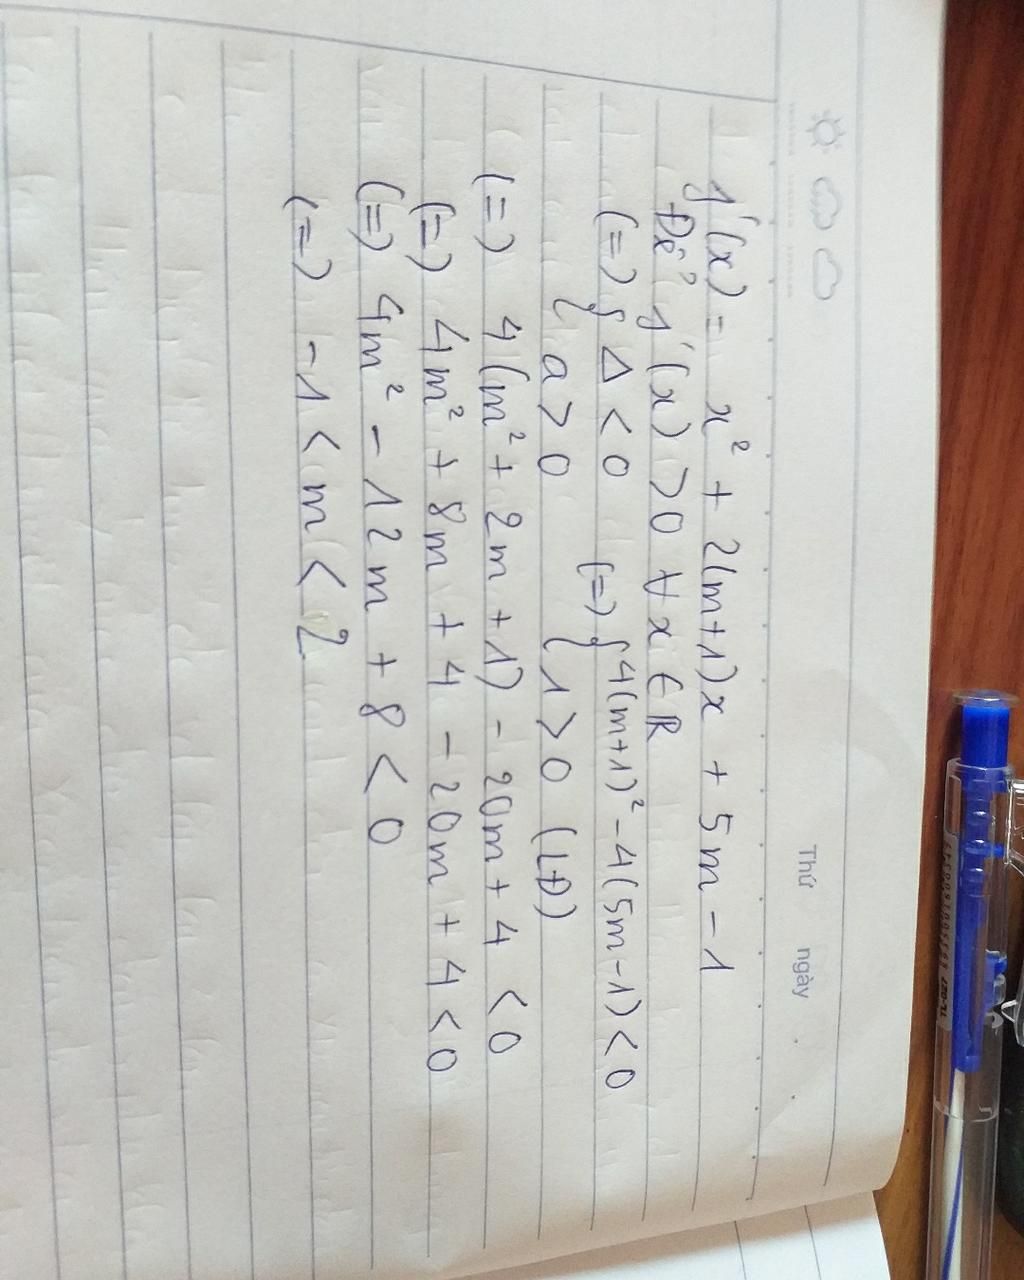 Thứ ngày
y'(x) = x² + 2(m+1)x + 5m - 1
Để y'(x) > 0 ∀ x ∈ R
(=) { Δ < 0 (=) { 4(m+1)² - 4(5m-1) < 0
{ a > 0 { 1 > 0 (LĐ)
(=) 4(m² + 2m + 1) - 20m + 4 < 0
(=) 4m² + 8m + 4 - 20m + 4 < 0
(=) 4m² - 12m + 8 < 0
(=) -1 < m < 2
TL-027